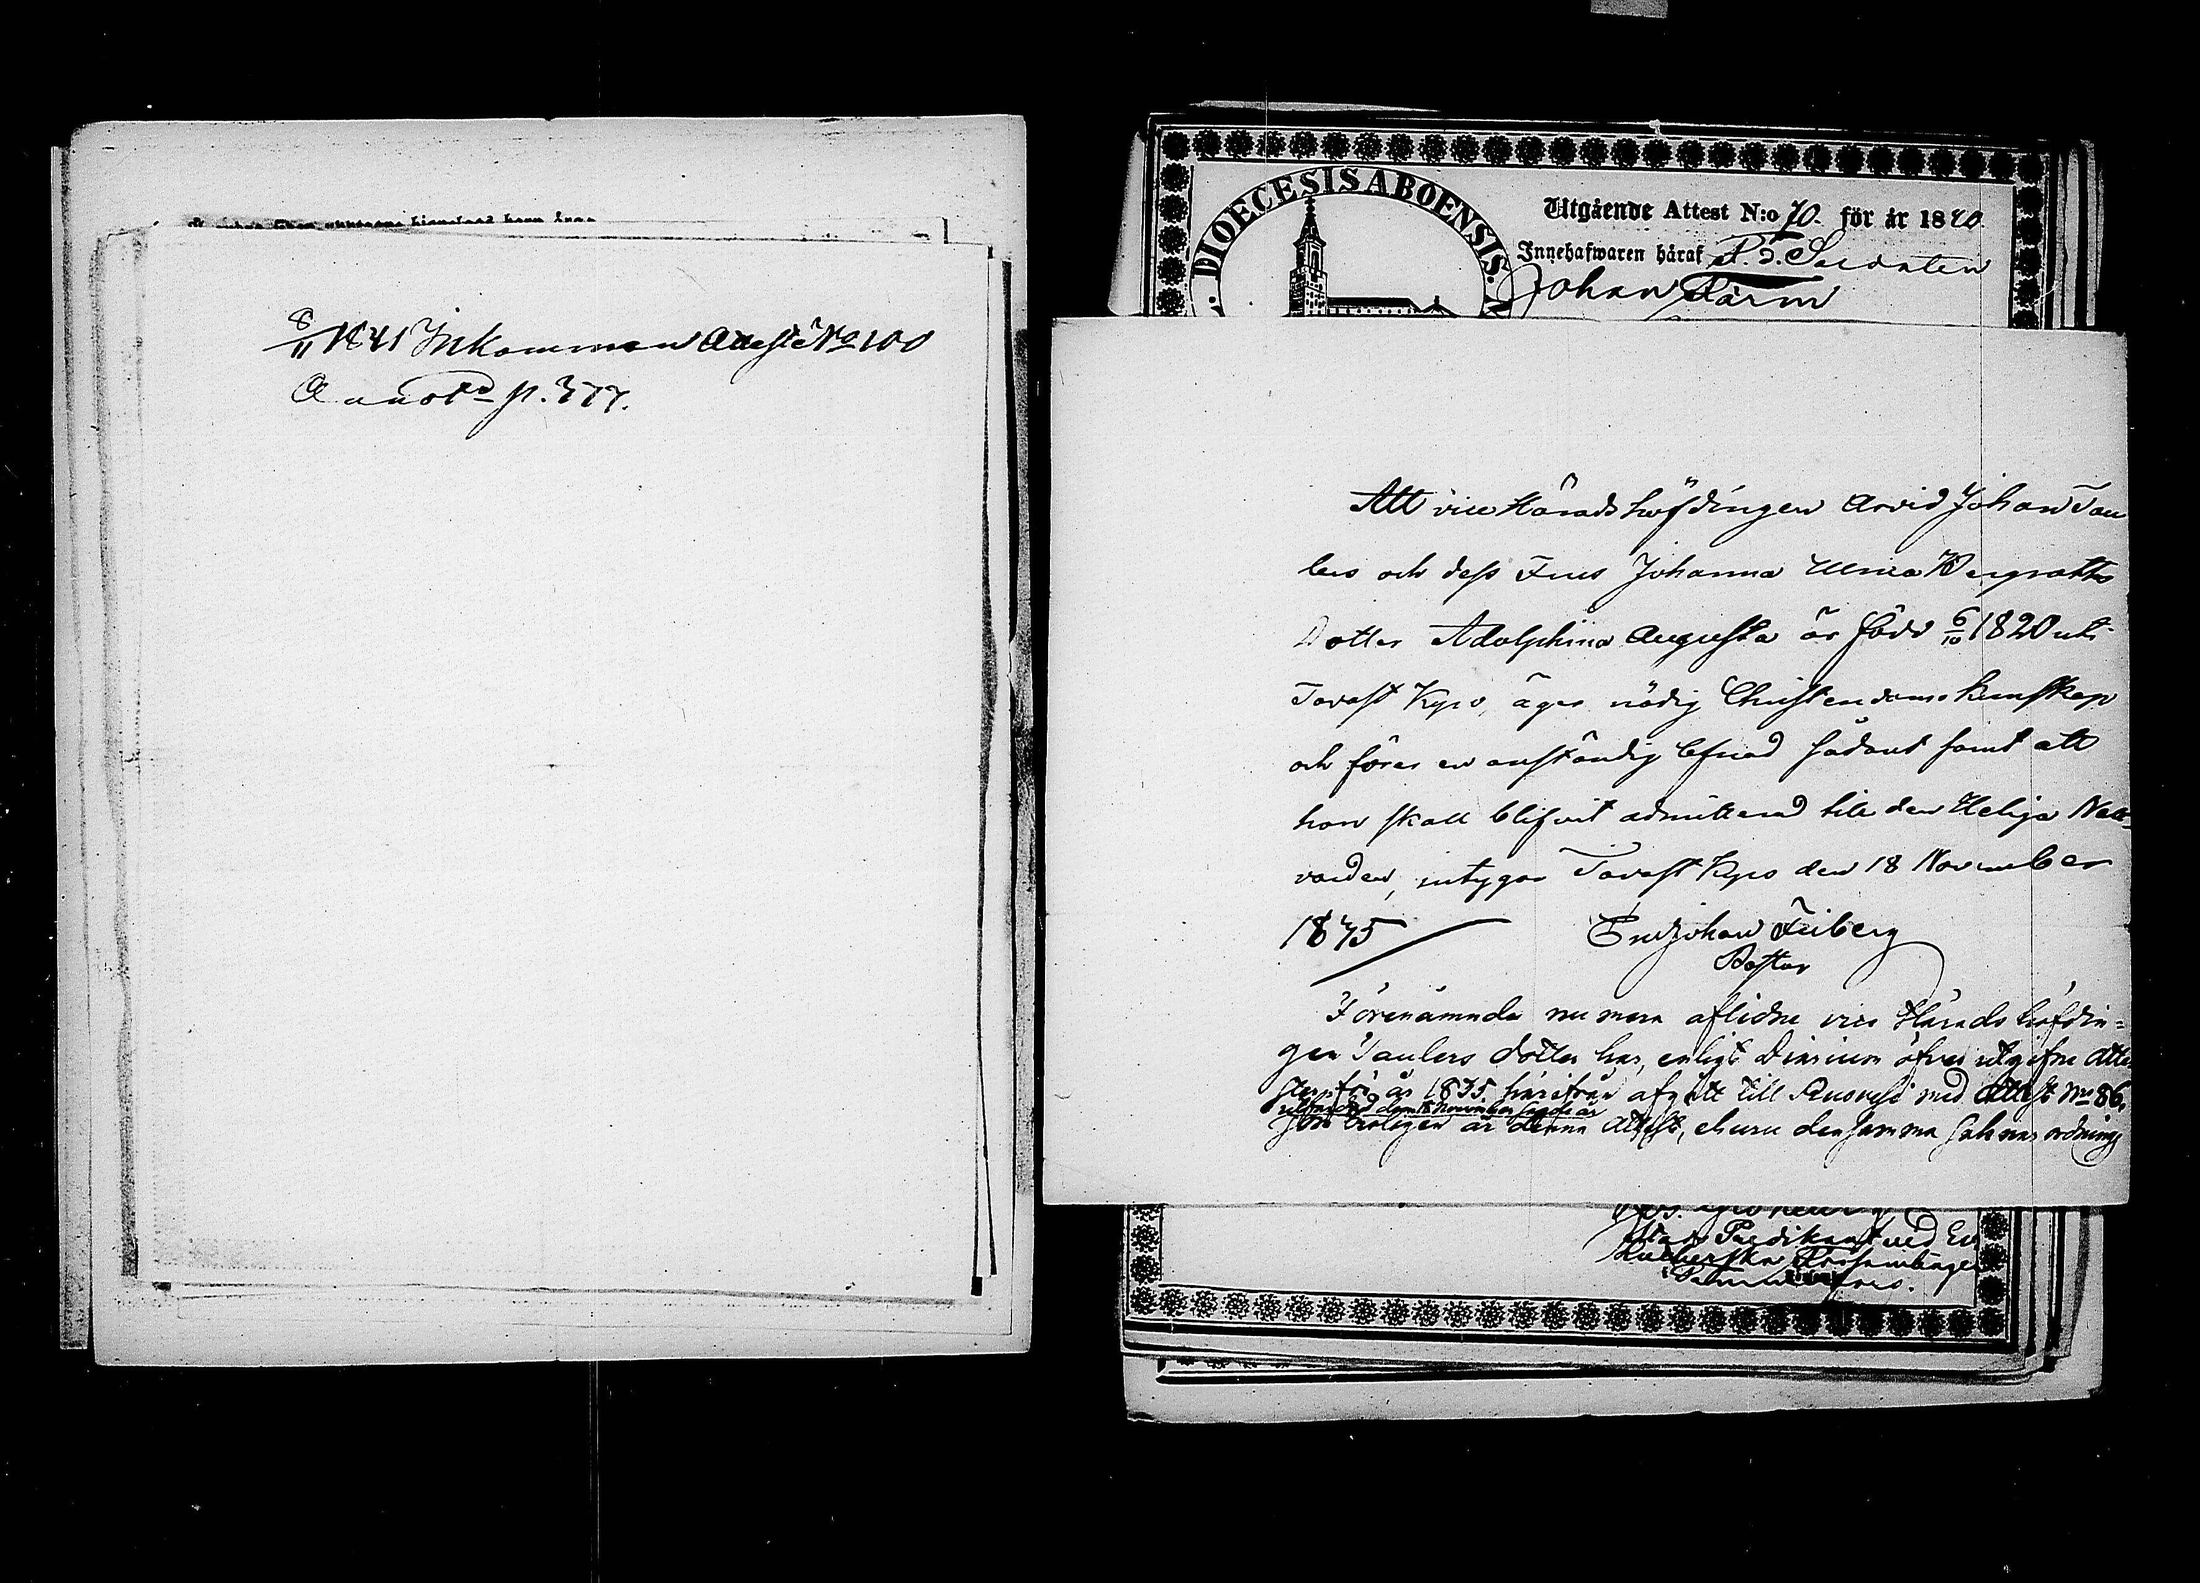 8/11 1841 Inkommen Attest No 100
annotd p. 377.
DIOECESIS ABOENSIS.
Utgående Attest N:o 70. för år 1840.
Innehafwaren häraf
Johan
Att vice Häradshöfdingen Arvid Johan Tau
lers och dess Frus Johanna Ulrica
Dotter Adolphina Augusta är född 6/10 1820 uti
Tavast Kyro, äger nödig Christendoms kunskap
och förer en anständig lefnad sådant samt att
hon skall blifvit admitterad till den Heliga Natt-
varden, intygar Tavast Kyro den 18 November
1835 Johan Friberg
Pastor
Förenämnda numera aflidne vice Härads höfdin=
gen Taulers dotter har, enligt Diarium öfver utgifne Atte
ster för år 1835. härifrån afgått till med Attest No 86,
utfärdad den 18 November sagde år
som troligen är denna Attest, ehuru densamma saknar ordnings
Predikant vid
Lutherska Församlingen